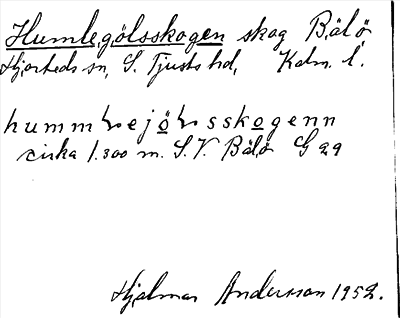 Humlegölsskogen skog Bälö
Hjorteds sn, S. Tjusts hd, Kalm. l.
hummɭejöɭsskogenn
cirka 1.300 m. S.V. Bälö G 29
Hjalmar Andersson 1952.